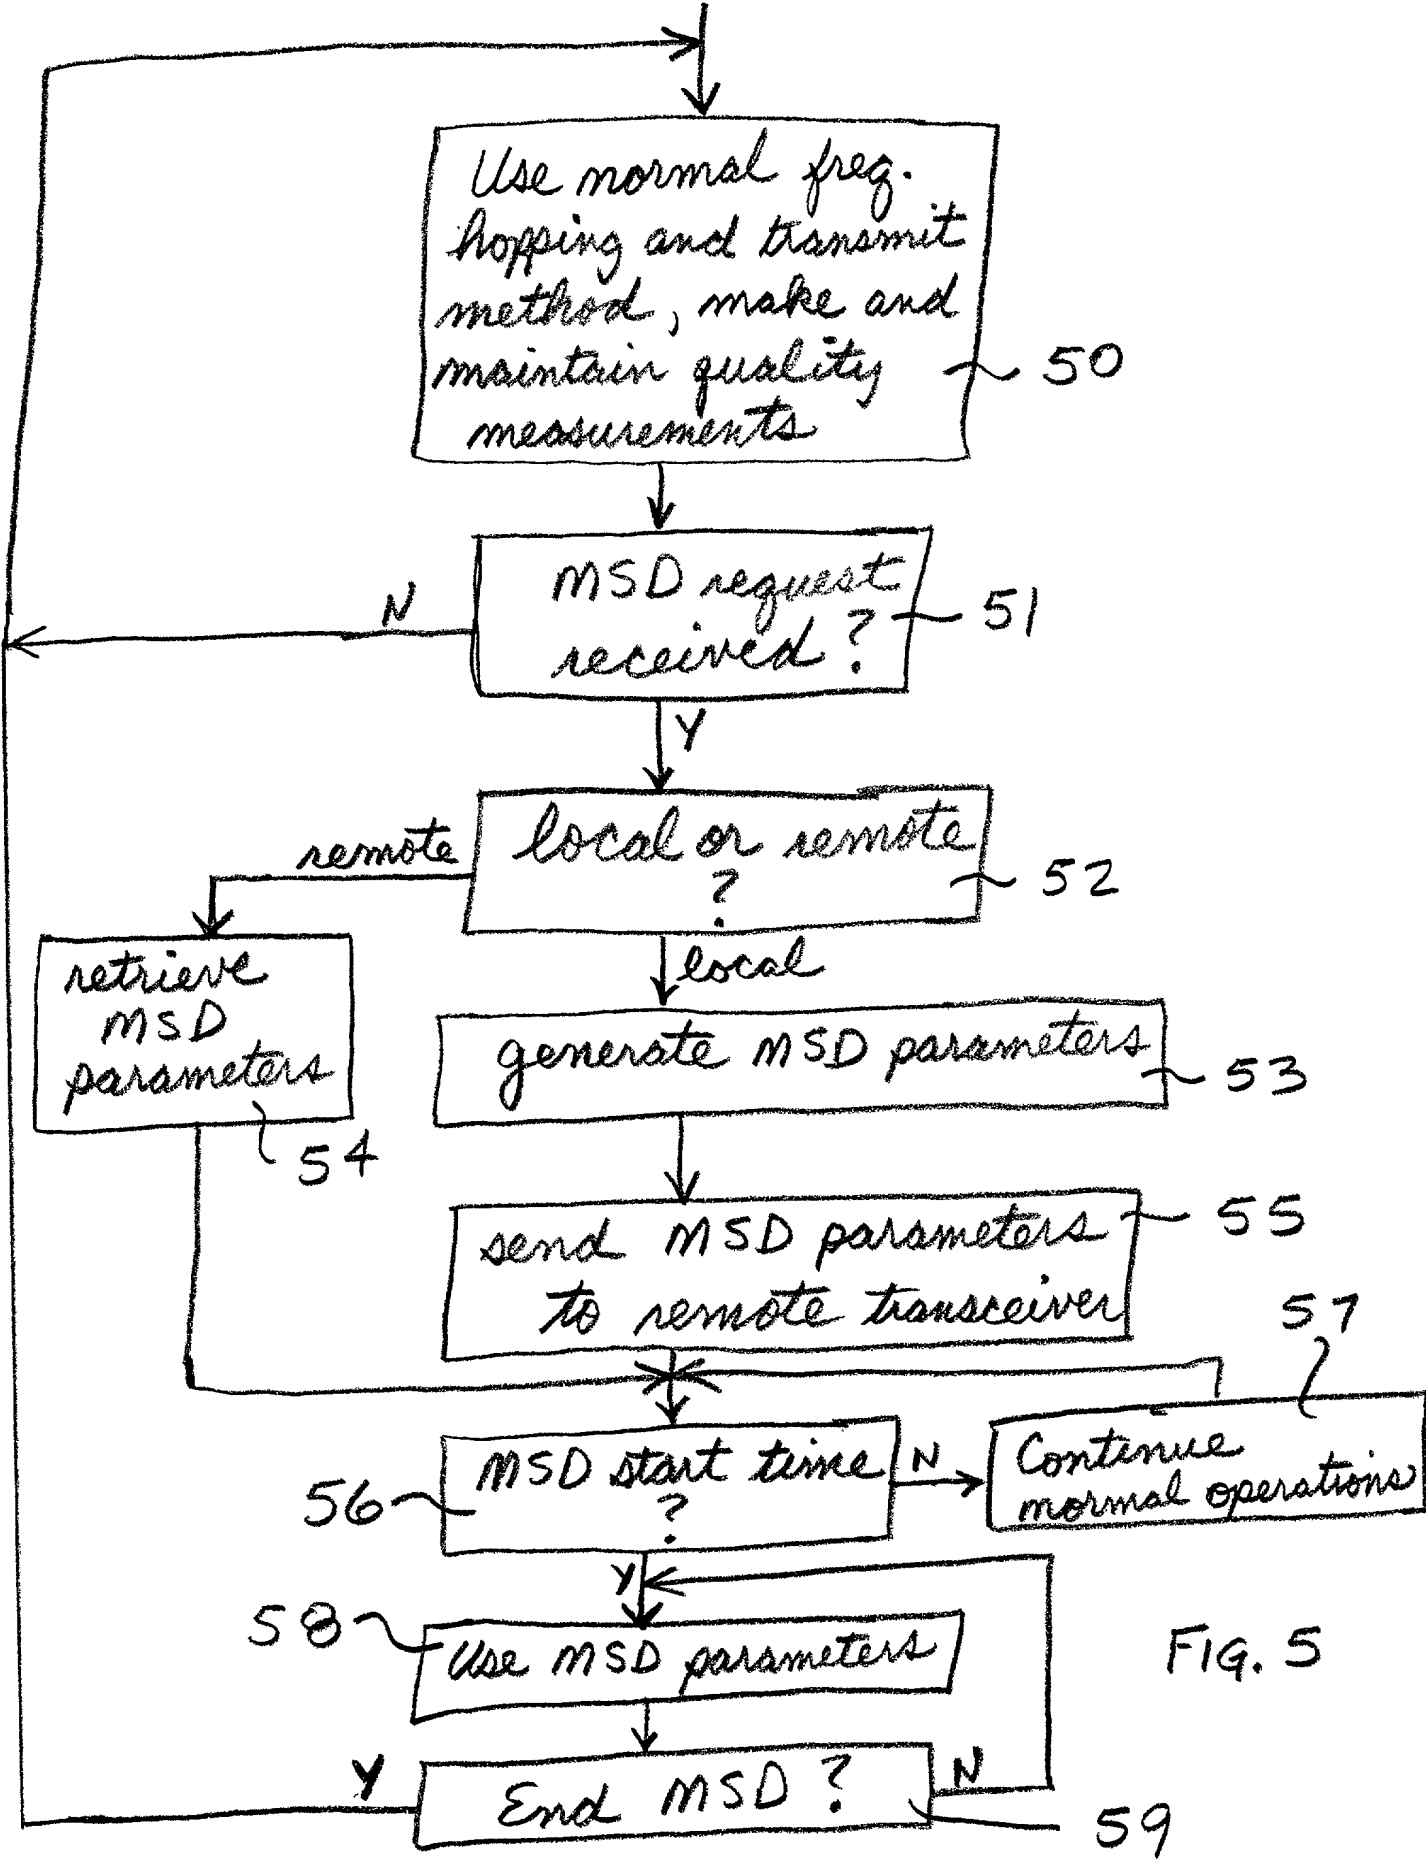 Use normal freq.
hopping and transmit
method, make and
maintain quality
measurements
50
MSD request
received?
51
N
Y
local or remote
?
52
remote
local
retrieve
MSD
parameters
54
generate MSD parameters
53
send MSD parameters
to remote transceiver
55
57
MSD start time
?
56
N
Continue
normal operations
Y
58
Use MSD parameters
FIG. 5
Y
End MSD?
N
59